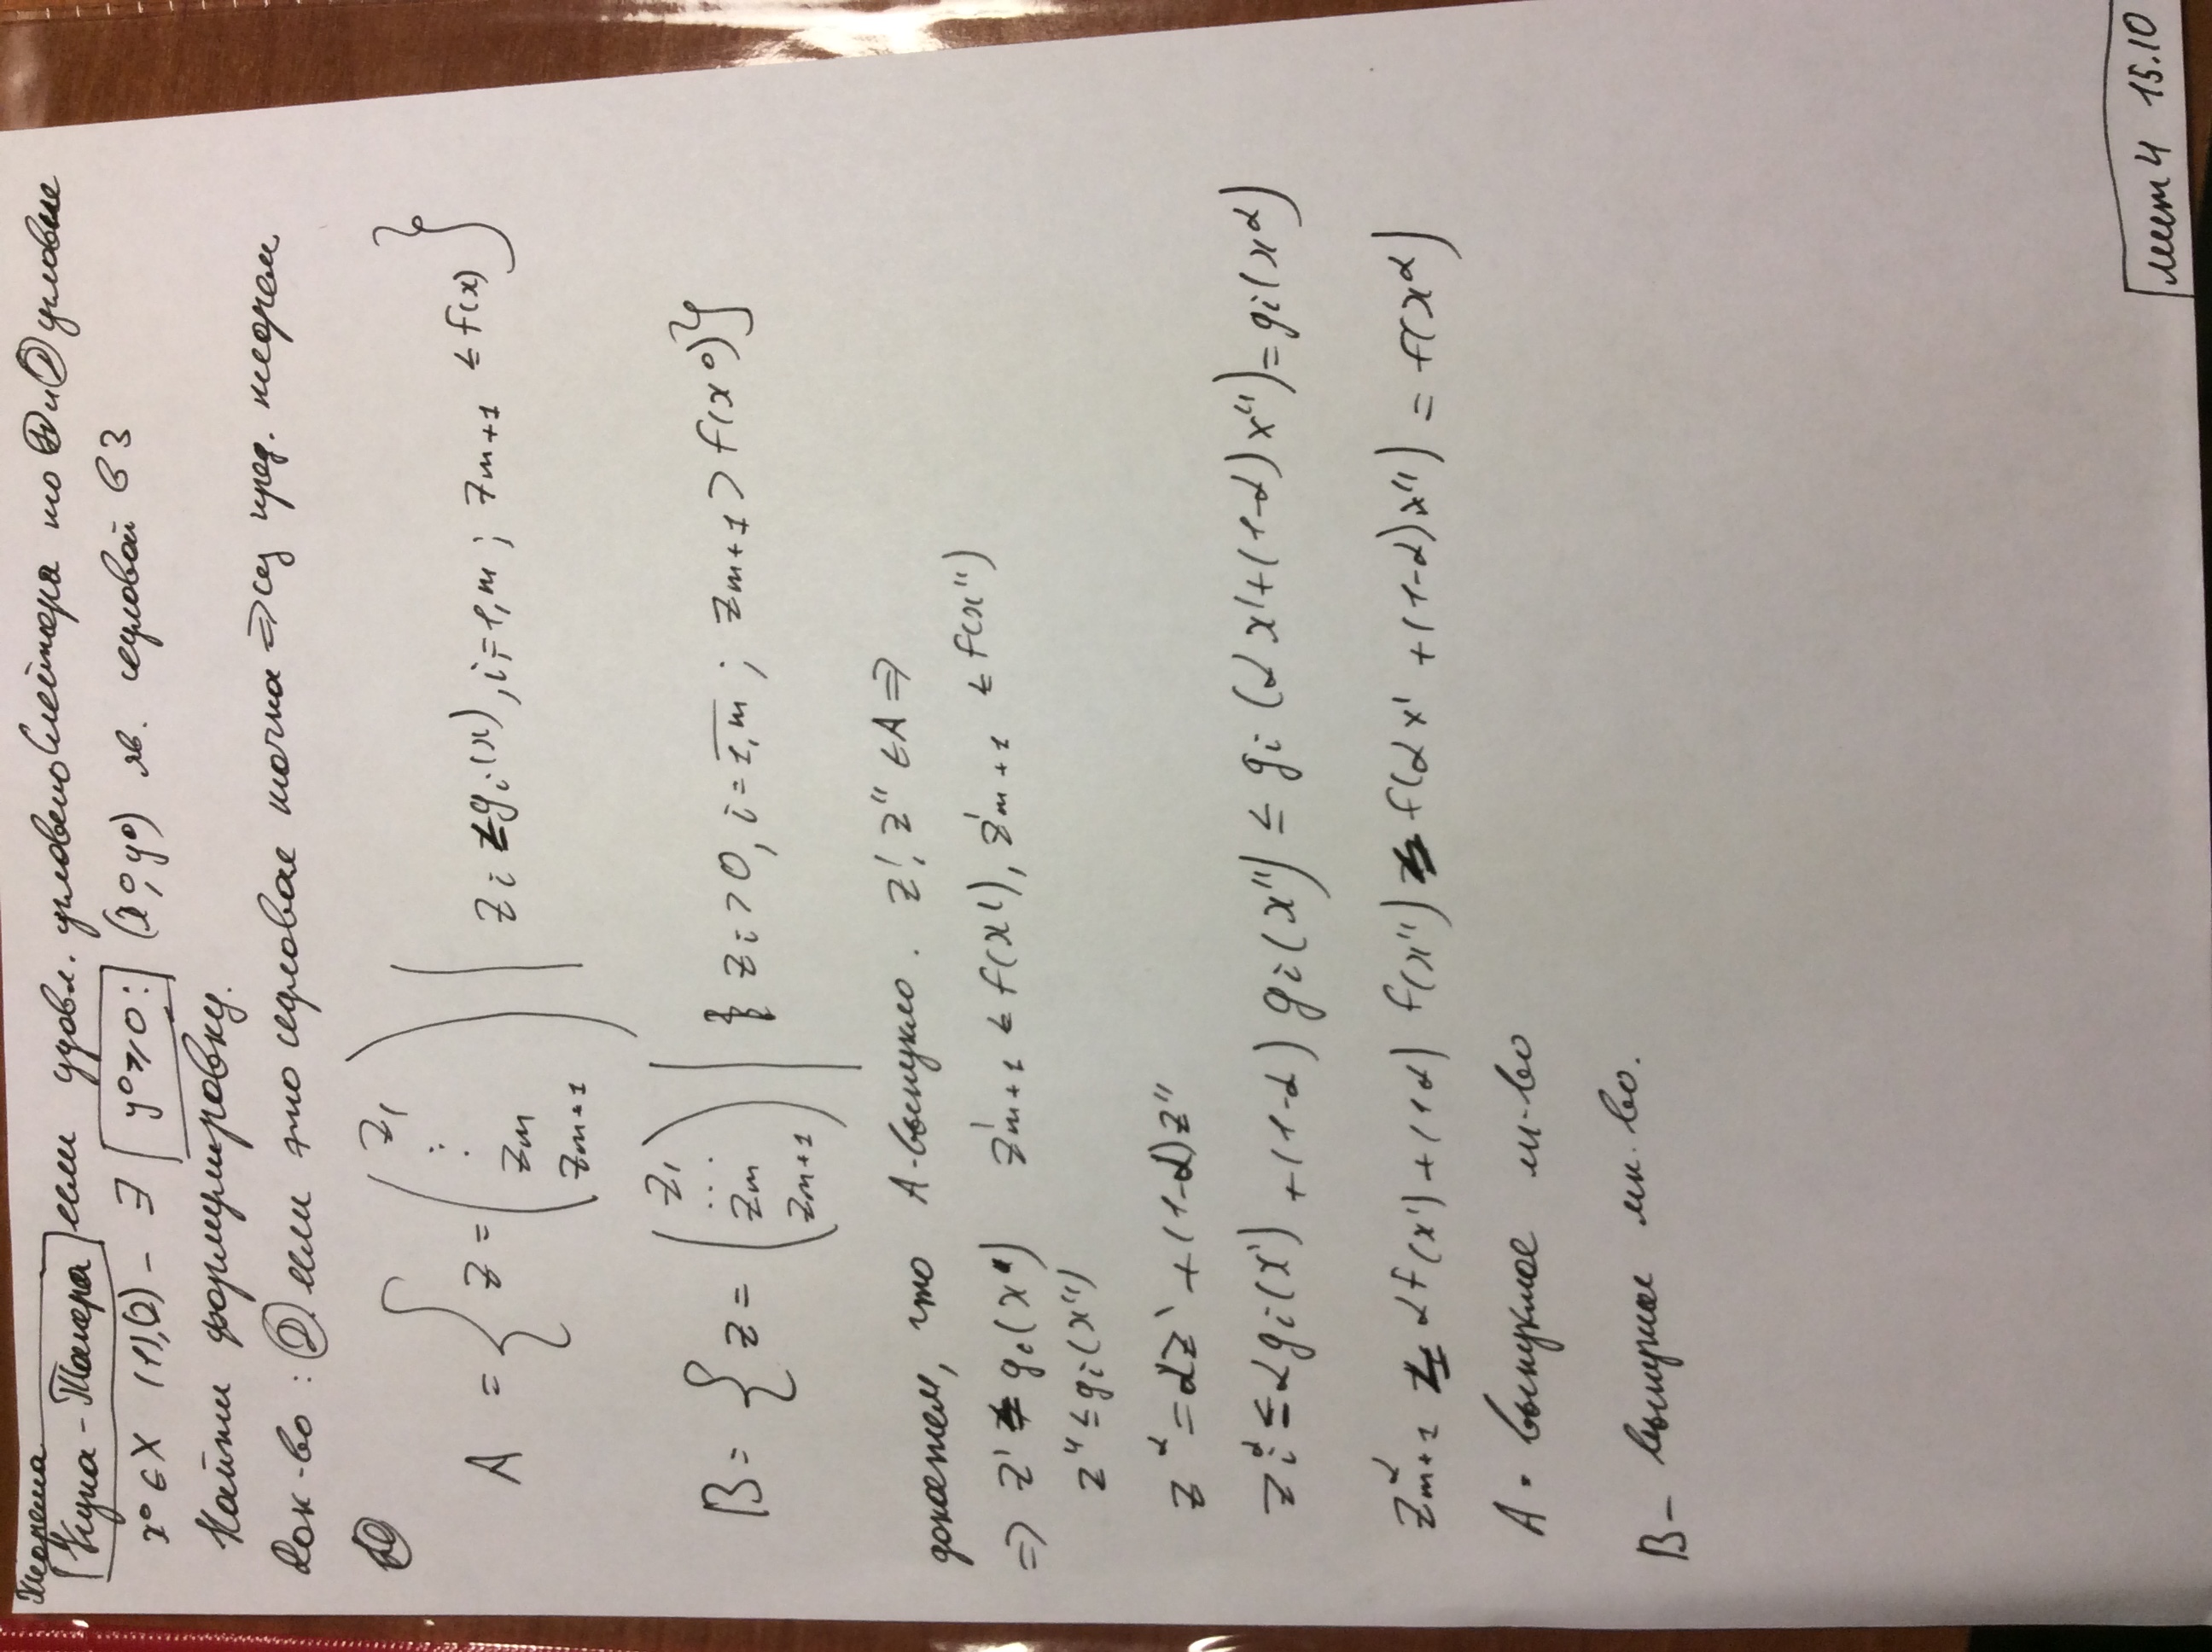 Теорема
Куна-Таккера если удовл. условию Слейтера то Н и Д условие
x⁰ ∈ X (1),(2) - ∃ y⁰ ≥ 0: (x⁰, y⁰) яв. седловой в 3
Найти формулировку.
Док-во: Д если это седловая точка ⇒ из пред. теорем
Н
A = { z = ( z₁ ⋮ zm zm+1 ) | zi ≤ gi(x), i=1,m; zm+1 ≤ f(x) }
B = { z = ( z₁ ... zm zm+1 ) | zi > 0, i = 1,m; zm+1 > f(x⁰) }
докажем, что A-выпукло. z', z'' ∈ A ⇒
⇒ z' ≤ gi(x') z'm+1 ≤ f(x'), z'm+1 ≤ f(x'')
z'' ≤ gi(x'')
z^α = αz' + (1-α)z''
zi^α ≤ αgi(x') + (1-α) gi(x'') ≤ gi(αx' + (1-α)x'') = gi(x^α)
z^αm+1 ≤ αf(x') + (1α) f(x'') ≤ f(αx' + (1-α)x'') = f(x^α)
A - выпуклое м-во
B - выпуклое мн. во.
лист 4 15.10